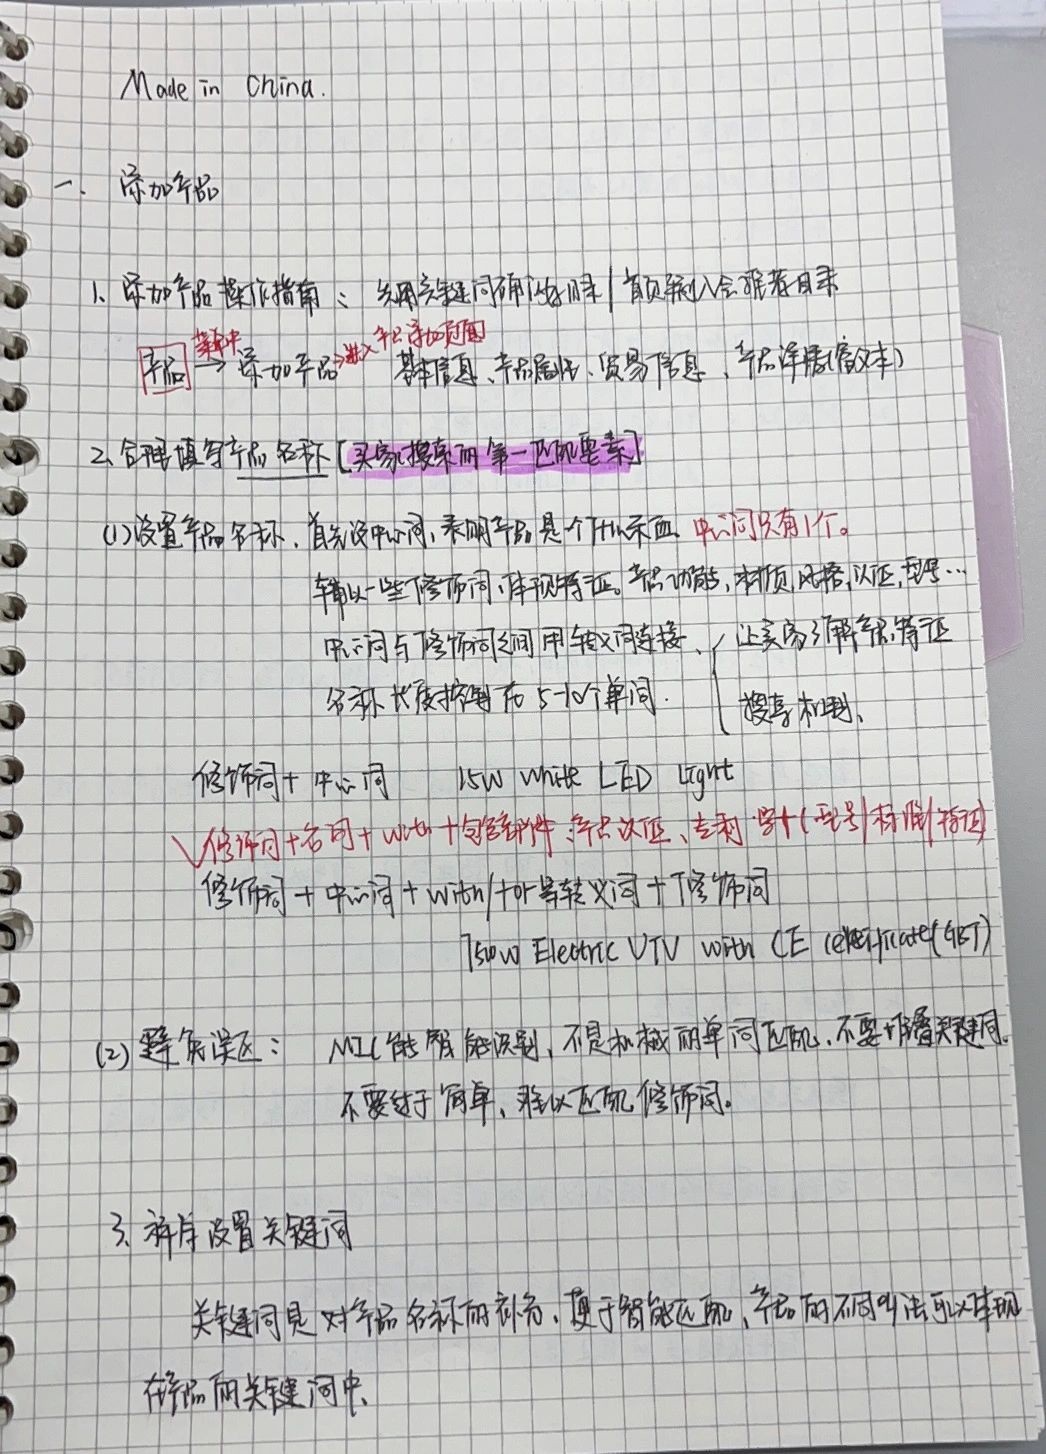 Made in China.
一. 添加产品
1、添加产品操作指南： 先用关键词确认好目录/首页输入会推荐目录
菜单中 进入 产品添加页面
产品 → 添加产品 → 基本信息、产品属性、贸易信息、产品详情(富文本)
2、合理填写产品名称[买家搜索的第一匹配要素]
(1)设置产品名称、首先设中心词，表明产品是个什么东西. 中心词只有1个。
辅以一些修饰词，体现特征。产品功能，材质，风格，认证，型号…
中心词与修饰词之间用转义词连接、 让卖家了解产品特征
名称长度控制在5-10个单词. 搜索机制、
修饰词+中心词 15W White LED Light
√修饰词+名词+with+包含部件、产品认证、专利 等+(型号/标准/特征)
修饰词+中心词+with/for等转义词+修饰词
750W Electric UTV with CE certificate(GBT)
(2) 避免误区： MIC能智能识别，不是机械的单词匹配，不要堆叠关键词。
不要过于简单、难以匹配修饰词。
3、 设置关键词
关键词是对产品名称的补充，便于智能匹配，产品的不同叫法可以体现
在产品的关键词中、